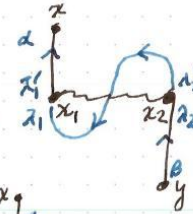 x
α
λ₁'
λ₁ x₁ x₂ λ₂
β
y
x